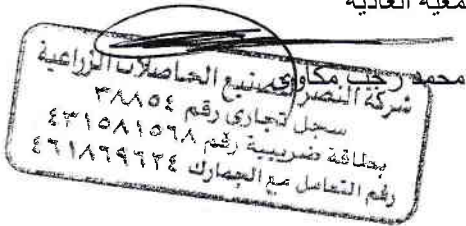 معية العادية
محمد رجب مكاوى
شركة النصر لتصنيع الحاصلات الزراعية
سجل تجارى رقم ٣٨٨٥٤
بطاقة ضريبية رقم ٤٣١٥٨١٥٦٨
رقم التعامل مع الجمارك ٤٦١٨٦٩٦٢٤